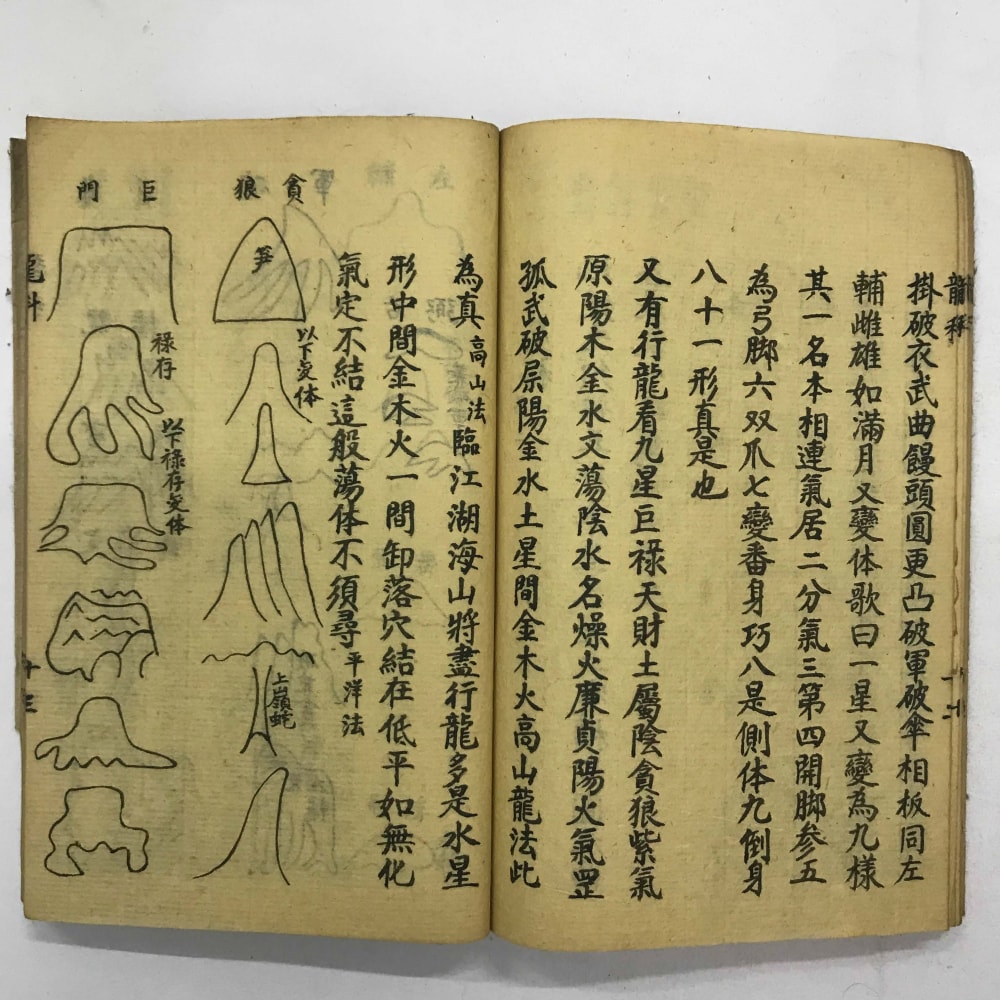 掛破衣武曲饅頭圓更凸破軍破傘相板同左
輔雌雄如滿月又變体歌曰一星又變為九樣
其一名本相連氣居二分氣三第四開脚参五
為弓脚六双爪七變番身巧八是側体九倒身
八十一形真是也
又有行龍看九星巨祿天財土屬陰貪狼紫氣
原陽木金水文蕩陰水名燥火廉貞陽火氣罡
孤武破屎陽金水土星間金木火高山龍法此
為真高山法臨江湖海山將盡行龍多是水星
形中間金木火一間卸落穴結在低平如無化
氣定不結這般蕩体不須尋平洋法
貪狼
笋
以下変体
上嶺蛇
巨門
禄存
以下禄存変体